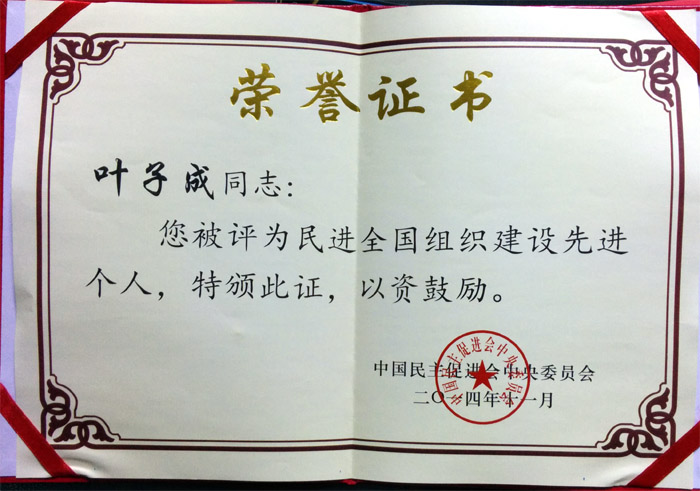 荣誉证书
叶子成同志：
您被评为民进全国组织建设先进
个人，特颁此证，以资鼓励。
中国民主促进会中央委员会
二〇一四年十一月
中国民主促进会中央委员会